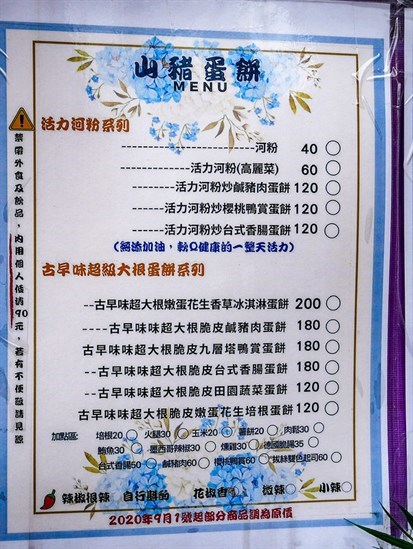 山豬蛋餅
MENU
活力河粉系列
河粉 40
活力河粉(高麗菜) 60
活力河粉炒鹹豬肉蛋餅 120
活力河粉炒櫻桃鴨賞蛋餅 120
活力河粉炒台式香腸蛋餅 120
古早味超級大根蛋餅系列
古早味味超大根嫩蛋花生香草冰淇淋蛋餅 200
古早味味超大根脆皮鹹豬肉蛋餅 180
古早味味超大根脆皮九層塔鴨賞蛋餅 180
古早味味超大根脆皮台式香腸蛋餅 180
古早味味超大根脆皮田園蔬菜蛋餅 120
古早味味超大根脆皮嫩蛋花生培根蛋餅 120
加點區: 培根20 火腿30 玉米20 薯餅20 肉鬆30
鮪魚30 墨西哥辣椒30 燻雞30 德國脆腸35
台式香腸50 鹹豬肉60 櫻桃鴨賞60 拔絲雙色起司60
辣椒很辣 自行斟酌 花椒香 微辣 小辣
2020年9月1號起部分商品調為原價
禁帶外食及飲品,內用個人低消90元,若有不便敬請見諒